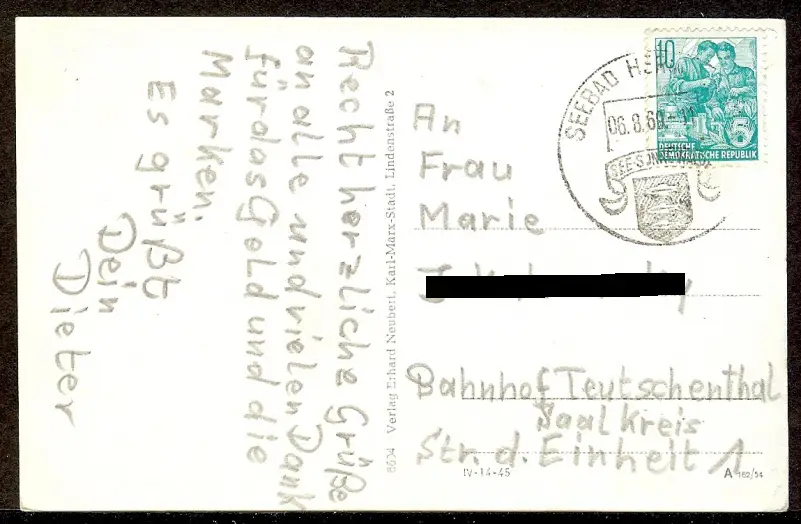 Recht herzliche Grüße
an alle und vielen Dank
für das Geld und die
Marken.
Es grüßt
Dein
Dieter
8604 Verlag Erhard Neubert, Karl-Marx-Stadt, Lindenstraße 2
10
5
DEUTSCHE
DEMOKRATISCHE REPUBLIK
SEEBAD
06.8.60
An
Frau
Marie
Bahnhof Teutschenthal
Saalkreis
Str. d. Einheit 1
IV-14-45
A 162/54